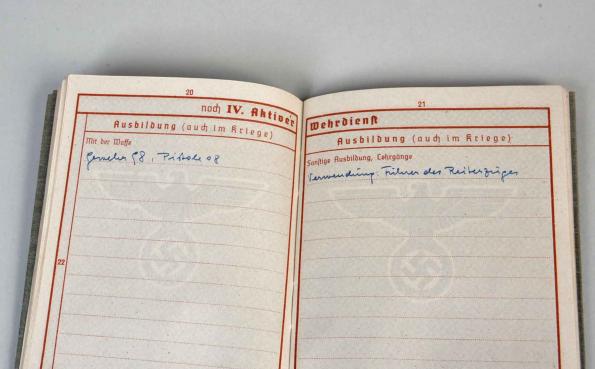 20
noch IV. Aktiver
Ausbildung (auch im Kriege)
Mit der Waffe
Gewehr 98, Pistole 08
22
21
Wehrdienst
Ausbildung (auch im Kriege)
Sonstige Ausbildung, Lehrgänge
Verwendung: Führer des Reiterzuges